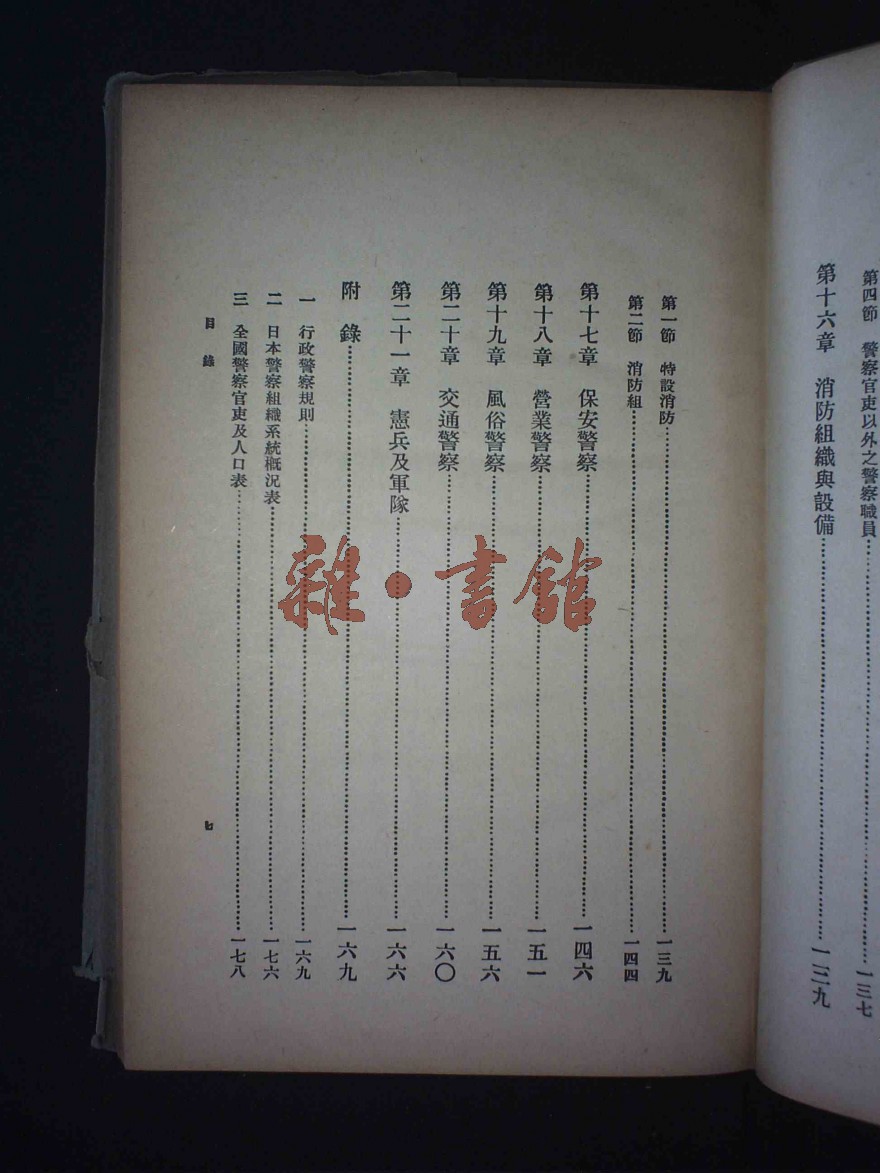 第四節　警察官吏以外之警察職員……一三七
第十六章　消防組織與設備……一三九
第一節　特設消防……一三九
第二節　消防組……一四四
第十七章　保安警察……一四六
第十八章　營業警察……一五一
第十九章　風俗警察……一五六
第二十章　交通警察……一六〇
第二十一章　憲兵及軍隊……一六六
附　錄……一六九
一　行政警察規則……一六九
二　日本警察組織系統概況表……一七六
三　全國警察官吏及人口表……一七八
目　錄
七
雜·書館